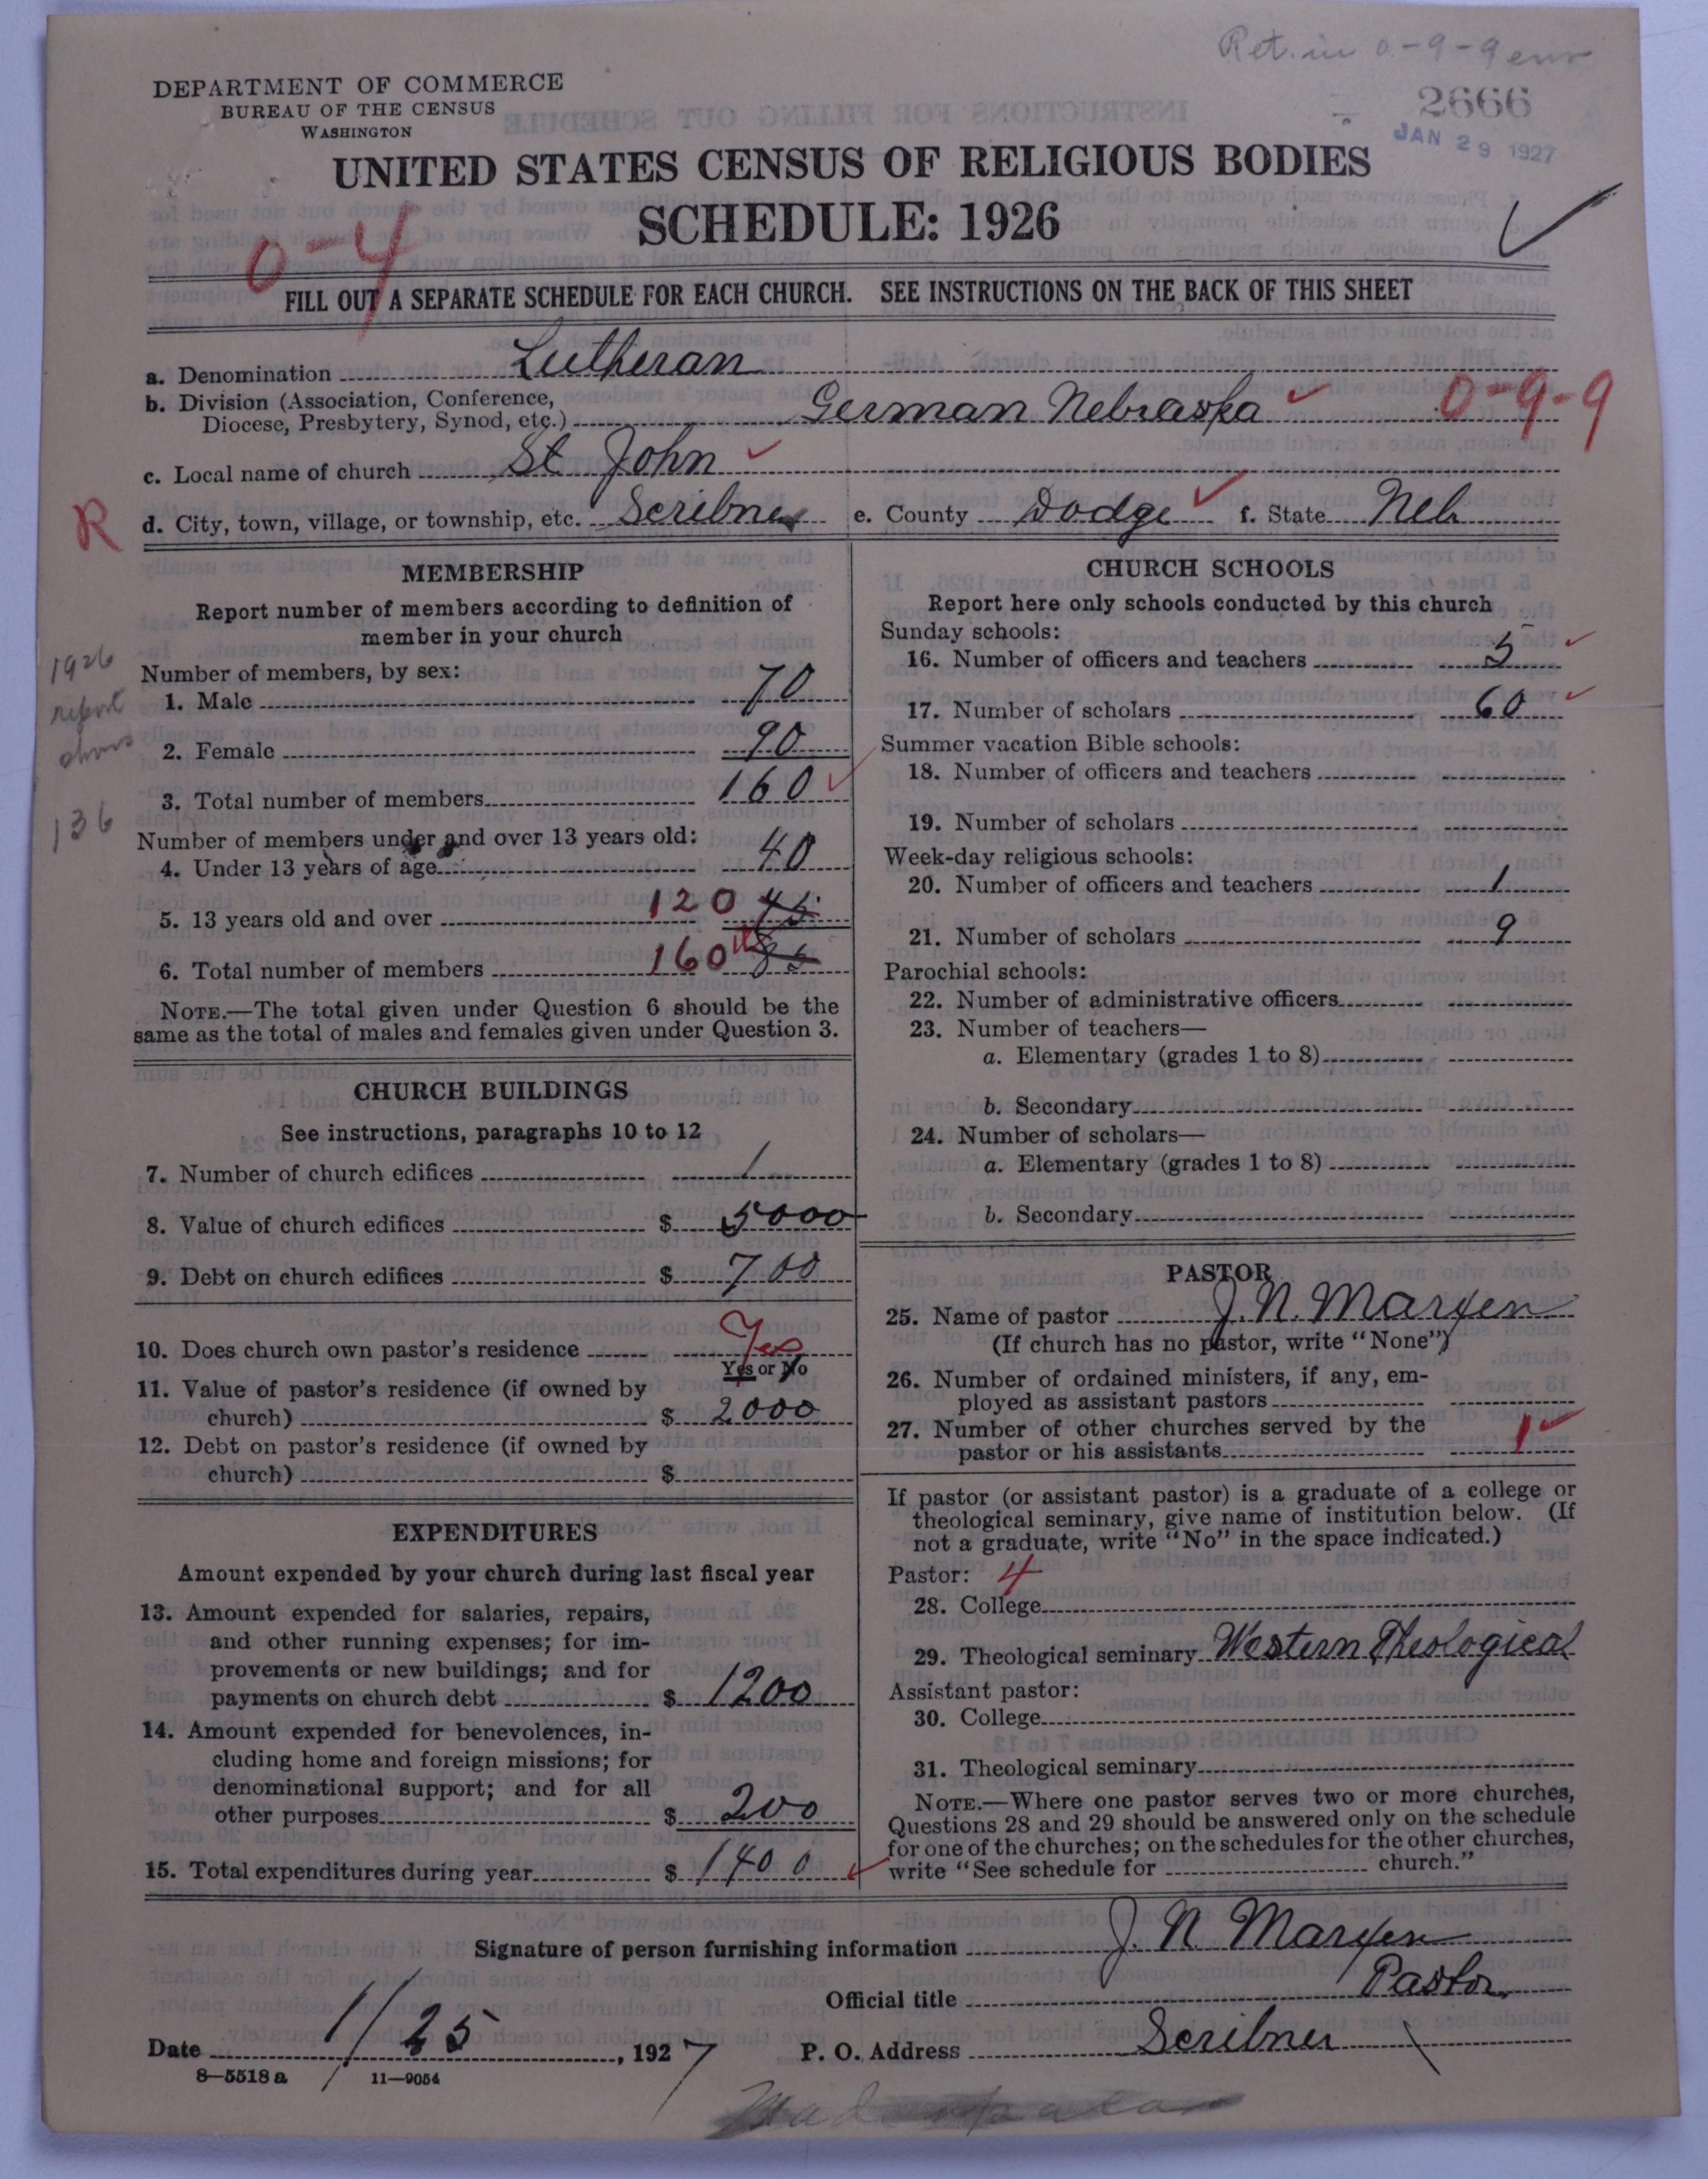 Ret. in 0-9-9
DEPARTMENT OF COMMERCE
BUREAU OF THE CENSUS
WASHINGTON
2666
JAN 29 1927
UNITED STATES CENSUS OF RELIGIOUS BODIES
SCHEDULE: 1926
0-4
FILL OUT A SEPARATE SCHEDULE FOR EACH CHURCH. SEE INSTRUCTIONS ON THE BACK OF THIS SHEET
a. Denomination Lutheran
b. Division (Association, Conference,
Diocese, Presbytery, Synod, etc.) German Nebraska 0-9-9
c. Local name of church St John
R d. City, town, village, or township, etc. Scribner e. County Dodge f. State Neb
MEMBERSHIP
Report number of members according to definition of
member in your church
1926
report
shows
136
Number of members, by sex:
1. Male 70
2. Female 90
3. Total number of members 160
Number of members under and over 13 years old:
4. Under 13 years of age 40
5. 13 years old and over 120 45
6. Total number of members 160 85
NOTE.—The total given under Question 6 should be the
same as the total of males and females given under Question 3.
CHURCH BUILDINGS
See instructions, paragraphs 10 to 12
7. Number of church edifices 1
8. Value of church edifices $ 5000
9. Debt on church edifices $ 700
10. Does church own pastor's residence Yes
Yes or No
11. Value of pastor's residence (if owned by
church) $ 2000
12. Debt on pastor's residence (if owned by
church) $
EXPENDITURES
Amount expended by your church during last fiscal year
13. Amount expended for salaries, repairs,
and other running expenses; for im-
provements or new buildings; and for
payments on church debt $ 1200
14. Amount expended for benevolences, in-
cluding home and foreign missions; for
denominational support; and for all
other purposes $ 200
15. Total expenditures during year $ 1400
CHURCH SCHOOLS
Report here only schools conducted by this church
Sunday schools:
16. Number of officers and teachers 5
17. Number of scholars 60
Summer vacation Bible schools:
18. Number of officers and teachers
19. Number of scholars
Week-day religious schools:
20. Number of officers and teachers 1
21. Number of scholars 9
Parochial schools:
22. Number of administrative officers
23. Number of teachers—
a. Elementary (grades 1 to 8)
b. Secondary
24. Number of scholars—
a. Elementary (grades 1 to 8)
b. Secondary
PASTOR
25. Name of pastor J. N. Marxen
(If church has no pastor, write "None")
26. Number of ordained ministers, if any, em-
ployed as assistant pastors
27. Number of other churches served by the
pastor or his assistants 1
If pastor (or assistant pastor) is a graduate of a college or
theological seminary, give name of institution below. (If
not a graduate, write "No" in the space indicated.)
Pastor: 4
28. College
29. Theological seminary Western Theological
Assistant pastor:
30. College
31. Theological seminary
NOTE.—Where one pastor serves two or more churches,
Questions 28 and 29 should be answered only on the schedule
for one of the churches; on the schedules for the other churches,
write "See schedule for church."
Signature of person furnishing information J. N. Marxen
Official title Pastor
Date 1/25, 1927 P. O. Address Scribner
8—5518 a 11—9054